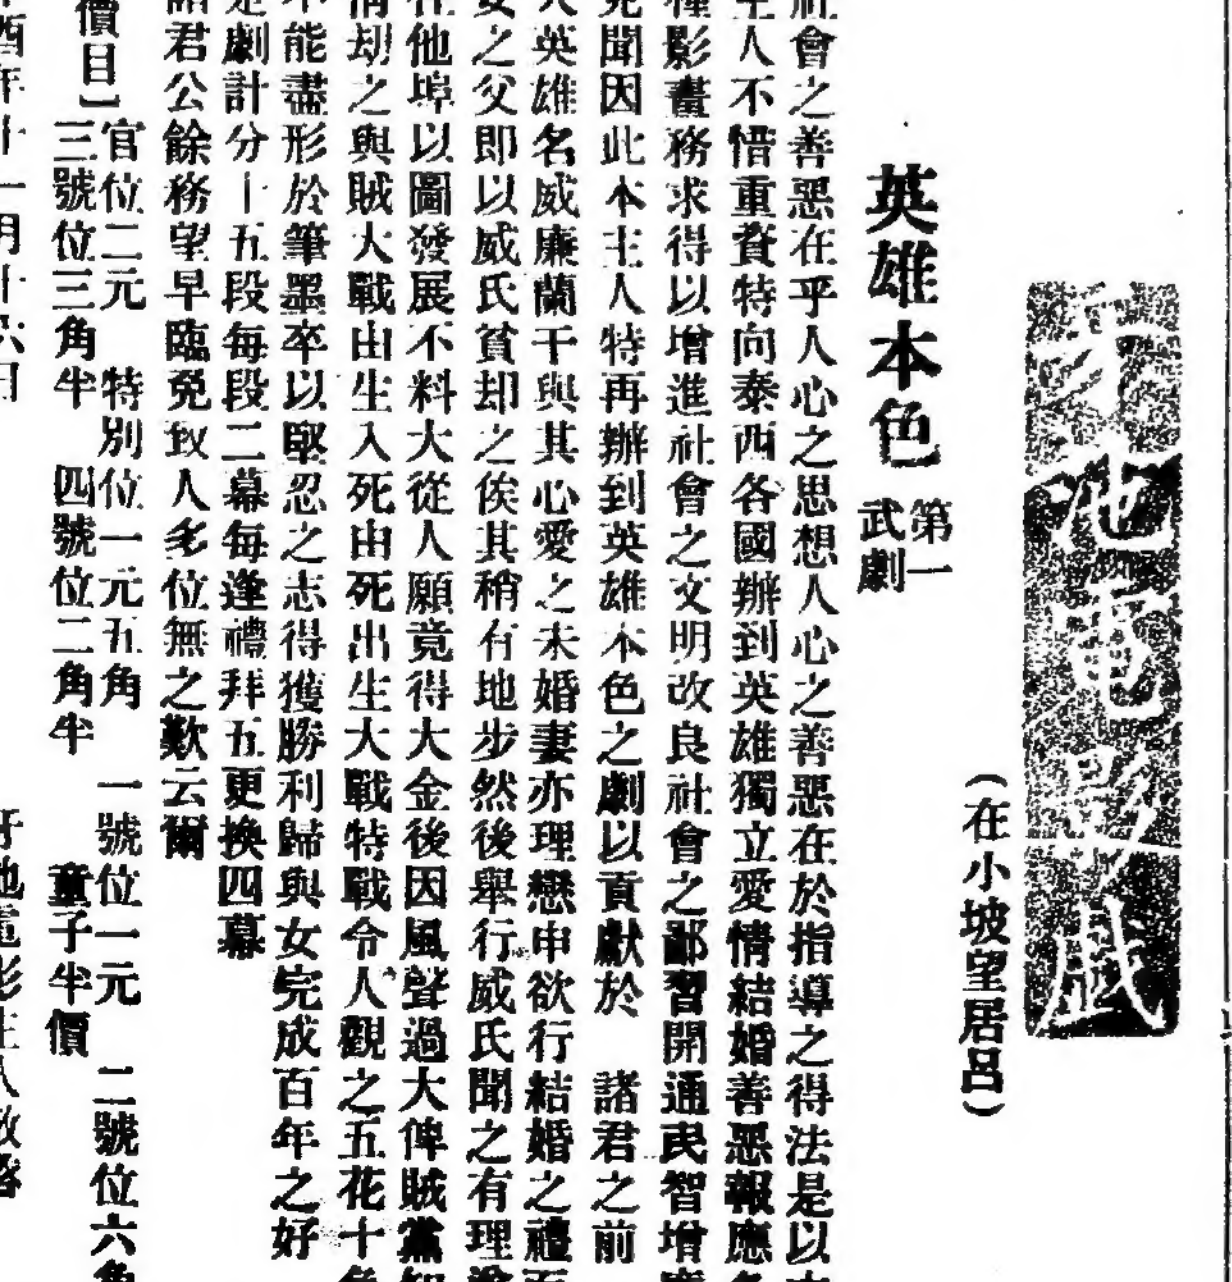 牙池電影戲
(在小坡望居呂)
英雄本色
第一
武劇
社會之善惡在乎人心之思想人心之善惡在於指導之得法是以本
主人不惜重資特向泰西各國辦到英雄獨立愛情結婚善惡報應各
種影畫務求得以增進社會之文明改良社會之鄙習開通民智增廣
見聞因此本主人特再辦到英雄本色之劇以貢獻於 諸君之前
英雄名威廉蘭干與其心愛之未婚妻亦理戀申欲行結婚之禮而
女之父即以威氏貧却之俟其稍有地步然後舉行威氏聞之有理
在他埠以圖發展不料大從人願竟得大金後因風聲過大俾賊黨知
情劫之與賊大戰由生入死由死出生大戰特戰令人觀之五花十色
不能盡形於筆墨卒以堅忍之志得獲勝利歸與女完成百年之好
是劇計分十五段每段二幕每逢禮拜五更換四幕
諸君公餘務望早臨免致人多位無之歎云爾
價目】
官位二元 特別位一元五角 一號位一元 二號位六角
三號位三角半 四號位二角半 童子半價
酉年十一月十六日 牙池電影主人啟